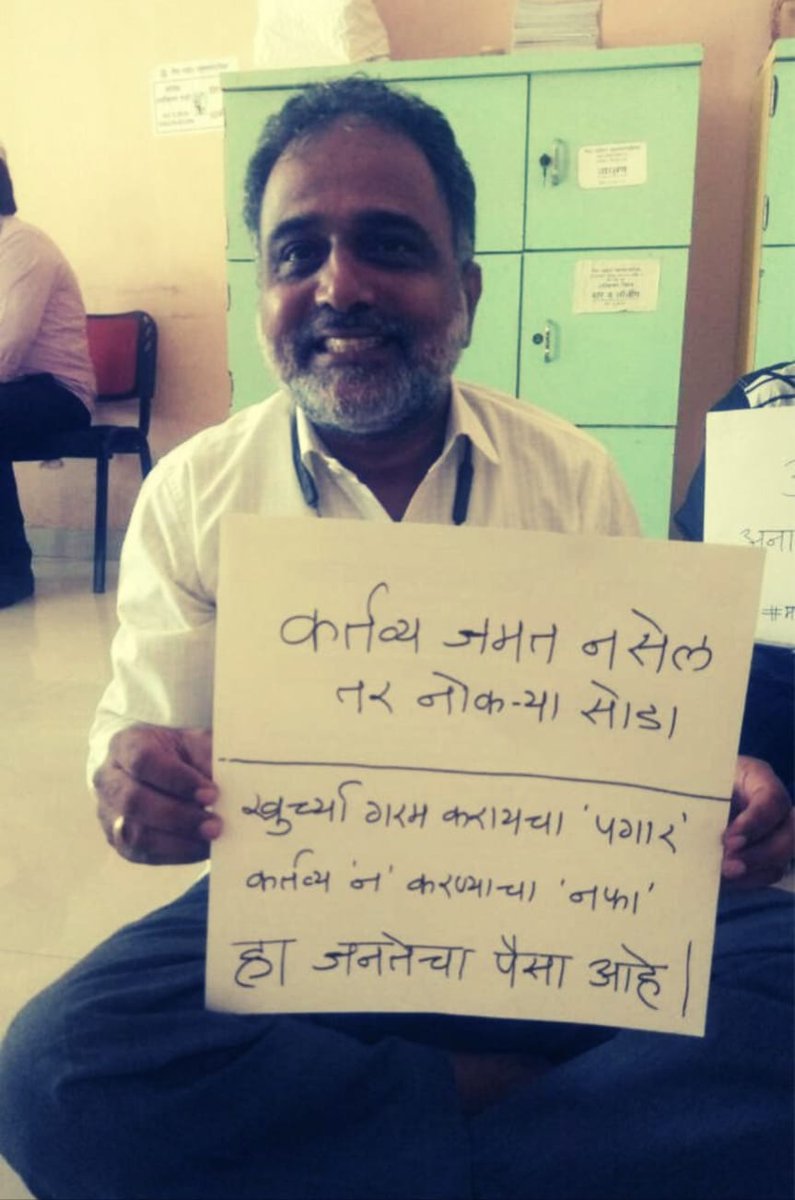 कर्तव्य जमत नसेल
तर नोक-या सोडा
खुर्च्या गरम करायचा 'पगार'
कर्तव्य 'न' करण्याचा 'नफा'
हा जनतेचा पैसा आहे|
अना